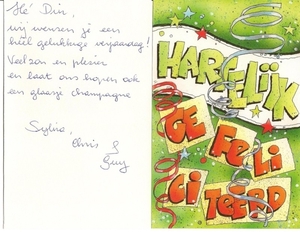 Hé Din,
wij wensen je een
heel gelukkige verjaardag!
Veel zon en plezier
en laat ons hopen ook
een glaasje champagne
Sylvia,
Chris &
Guy
HARTELIJK
GE
FE LI
CI TEERD